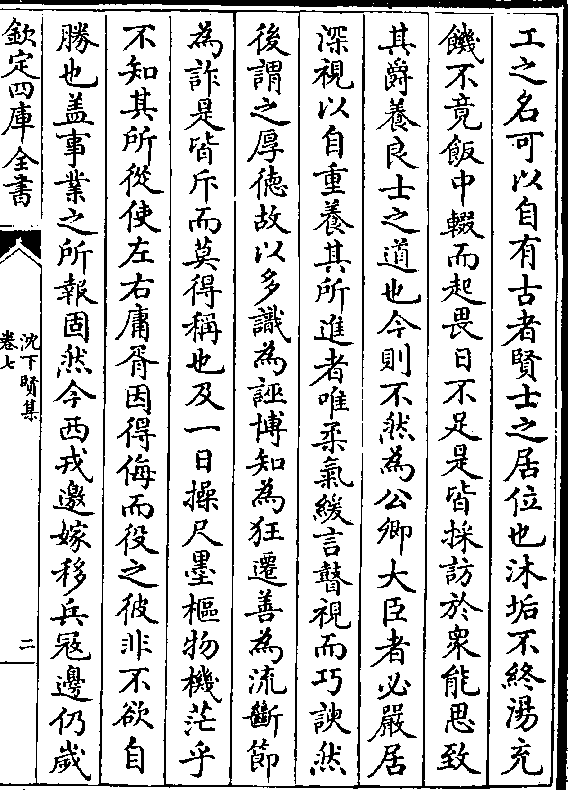 工之名可以自有古者賢士之居位也沐垢不終湯充
饑不竟飯中輟而起畏日不足是皆採訪於衆能思致
其爵養良士之道也今則不然為公卿大臣者必嚴居
深視以自重養其所進者唯柔氣緩言瞽視而巧諛然
後謂之厚德故以多識為誣博知為狂遷善為流斷節
為詐是皆斥而莫得稱也及一日操尺墨樞物機茫乎
不知其所從使左右庸胥因得侮而役之彼非不欲自
勝也盖事業之所報固然今西戎邀嫁移兵冦邊仍歲
欽定四庫全書
沈下賢集
卷七
二